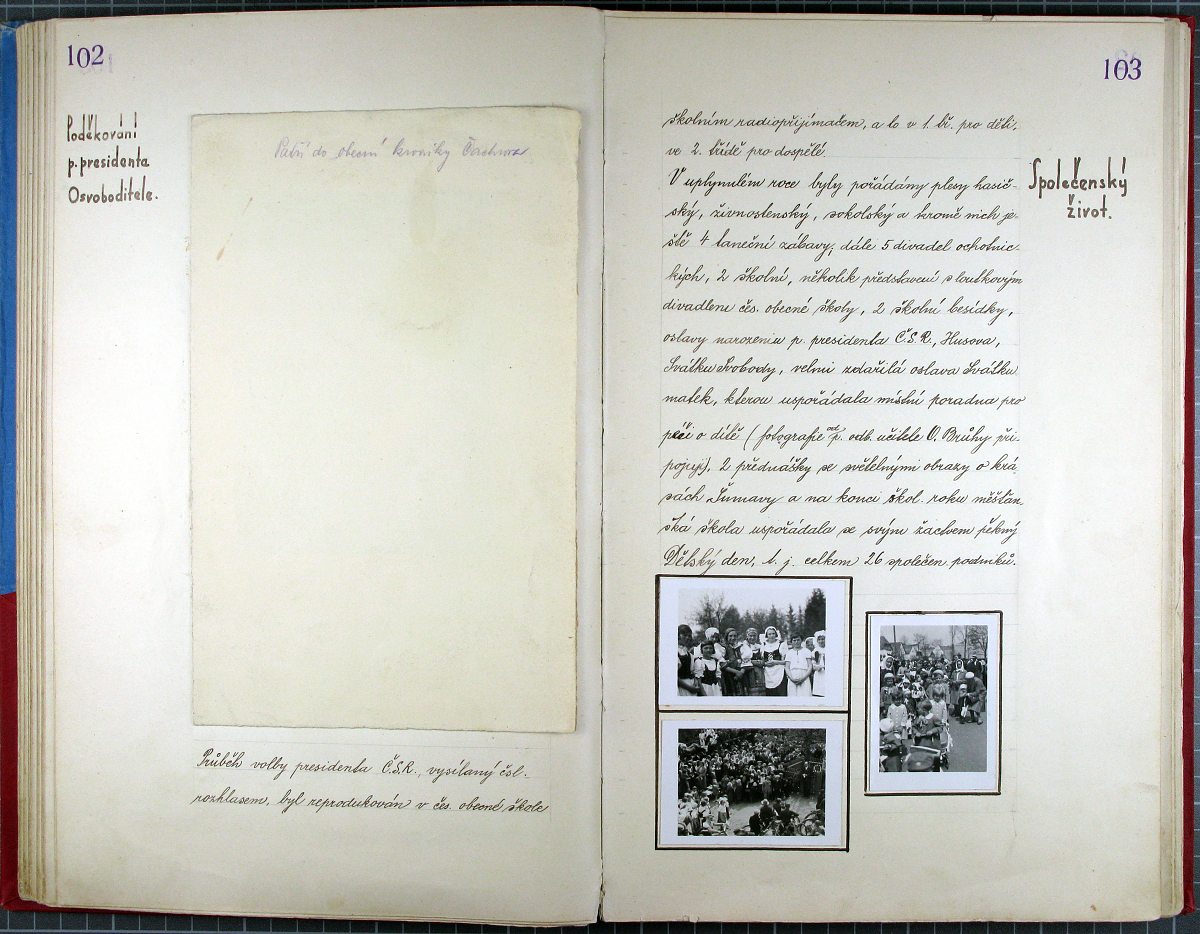 102
Poděkování
p. presidenta
Osvoboditele.
Patří do obecní kroniky
Průběh volby presidenta Č.S.R., vysílaný čsl.
rozhlasem, byl reprodukován v čes. obecné škole
103
školním radiopřijímačem, a to v 1. tř. pro děti,
ve 2. třídě pro dospělé.
Společenský
život.
V uplynulém roce byly pořádány plesy hasič-
ský, živnostenský, sokolský a kromě nich je-
ště 4 taneční zábavy; dále 5 divadel ochotnic-
kých, 2 školní, několik představení s loutkovým
divadlem čes. obecné školy, 2 školní besídky,
oslavy narozenin p. presidenta Č.S.R., Husova,
Svátku Svobody, velmi zdařilá oslava Svátku
matek, kterou uspořádala místní poradna pro
péči o dítě (fotografie od p. odb. učitele O. Brůhy při-
pojuji), 2 přednášky se světelnými obrazy o krá-
sách Šumavy a na konci škol. roku měšťan-
ská škola uspořádala se svým žactvem pěkný
Dětský den, t. j. celkem 26 společen. podniků.